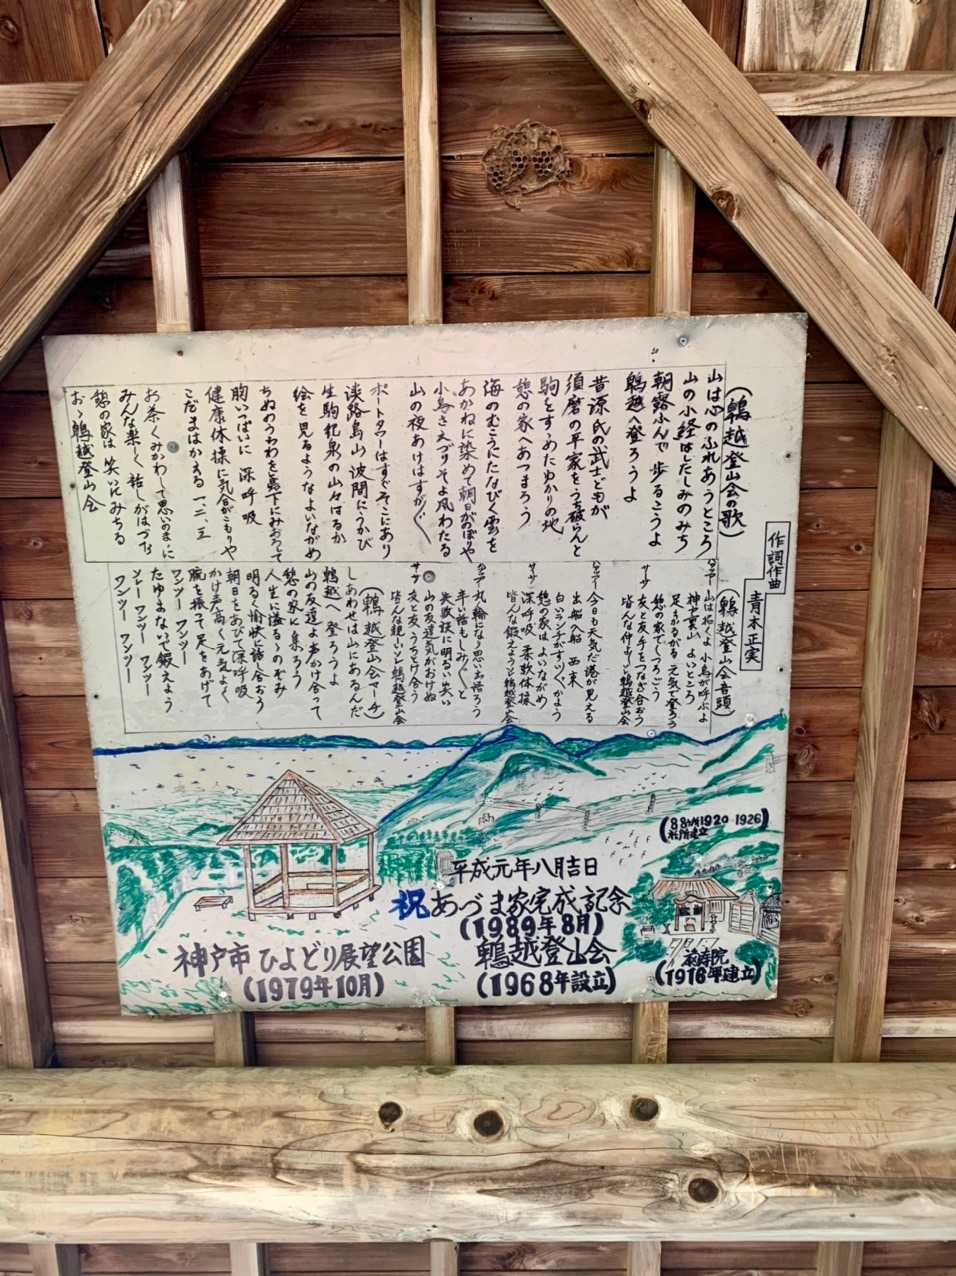 (鵯越登山会の歌)
山は心のふれあうところ
山の小経はたしみのみち
朝露ふんで歩るこうよ
鵯越へ登ろうよ
昔源氏の武士どもが
須磨の平家をうち破らんと
駒をすゝめたゆかりの地
憩の家へあつまろう
海のむこうにたなびく雲を
あかねに染めて朝日がのぼりや
小鳥さえづりそよ風わたる
山の夜あけはすがすがし
ポートタワーはすぐそこにあり
淡路島山波間にうかび
生駒紀泉の山々はるか
絵を見るようなよいながめ
ちぬのうわわを眞下にみおろして
胸いっぱいに深呼吸
健康体操に気合がこもりや
こだまはかえる一、二、三
お茶くみかわして思いのまに
みんな楽しく話しがはづむ
憩の家は笑いにみちる
おゝ鵯越登山会
作詞作曲
青木正実
(鵯越登山会音頭)
山は招くよ小鳥が呼ぶよ
神戸裏山よいところ
足どりかるがる元気で登ろう
憩の家でくつろごう
友と友手をつなぎ合おう
皆んな仲よーソレ鵯越登山会
今日も天気だ港が見える
出船入船西東
白いランチがすいすいかよう
憩の家はよいながめ
深呼吸柔軟体操
皆んな鍛えようソレ鵯越登山会
丸い輪になり思い出語ろう
辛い話もしみじみと
失敗談に明るい笑い
山の友達気がおけぬ
友と友うちとけ合う
皆んな親しいソレ鵯越登山会
(鵯越登山会マーチ)
しあわせは山にあるんだ
鵯越へ登ろうよ
山の友達よ声かけ合って
憩の家に集ろう
人生に溢るゝのぞみ
明るく愉快に語り合おう
朝日をあびて深呼吸
かけ声高く元気よく
腕を振って足をあげて
ワンツーワンツー
たゆまないで鍛えよう
ソレーワンツーワンツー
ワンツーワンツー
平成元年八月吉日
祝あづま家完成記念
(1989年8月)
鵯越登山会
(1968年設立)
神戸市ひよどり展望公園
(1979年10月)
(88ヶ所1920 1926)
建立
院
(1916年建立)